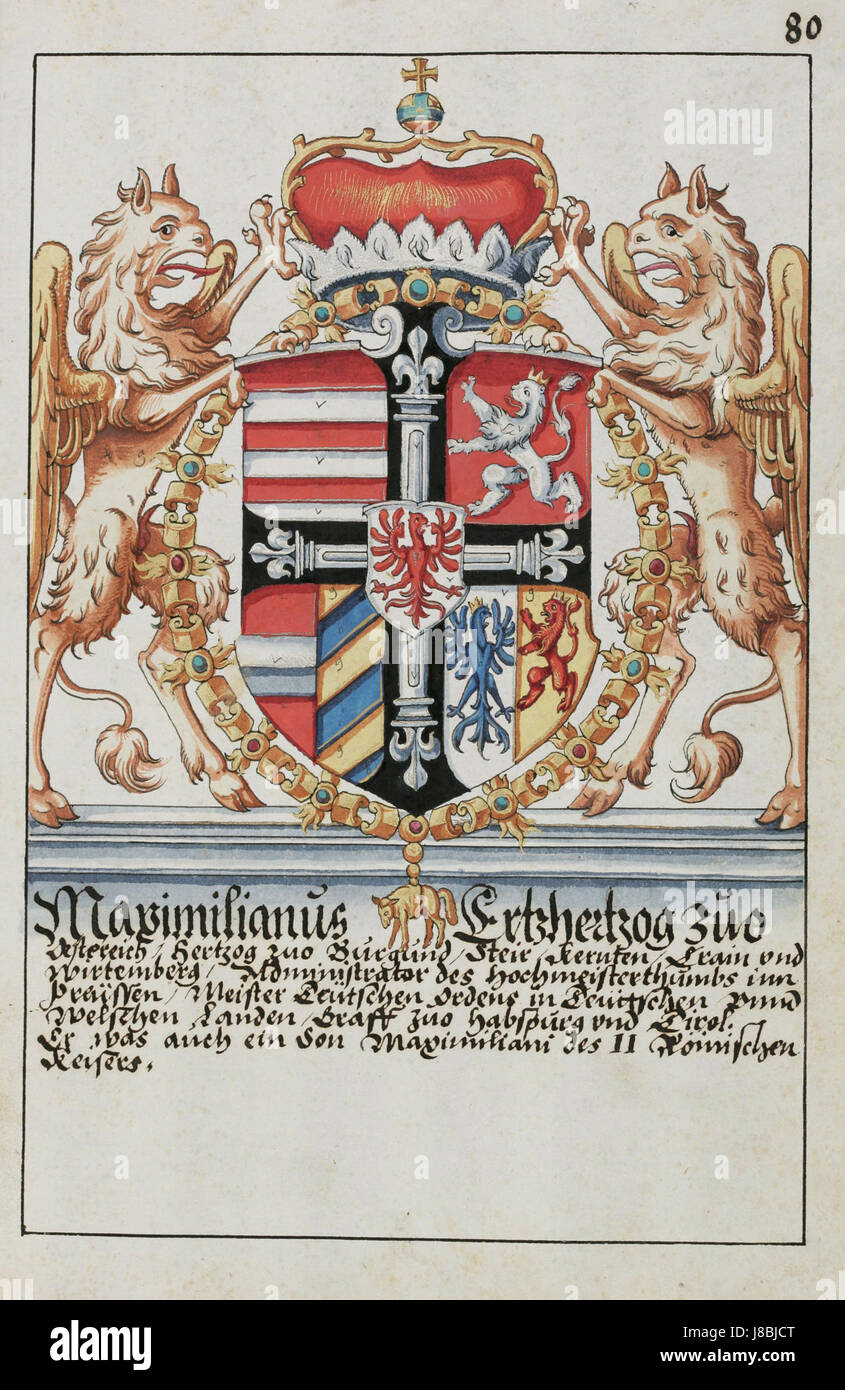 80
Maximilianus Ertzhertzog zuo
Osterreich / Hertzog zuo Burgund / Steir / Kernten / Crain vnd
Wirtemberg / Administrator des Hochmeisterthumbs inn
Preüssen / Meister Teutschen Ordens in Teutschen vnnd
Welschen Landen / Graff zuo Habspurg vnd Tirol.
Er was auch ein Son Maximiliani des II Römischen
Keisers.
alamy
Image ID: J8BJCT
www.alamy.com